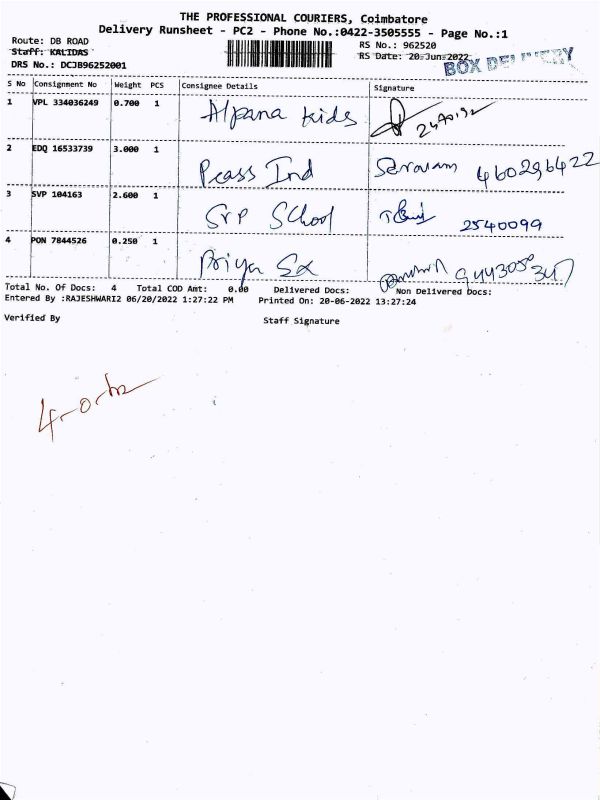 THE PROFESSIONAL COURIERS, Coimbatore
Delivery Runsheet - PC2 - Phone No.:0422-3505555 - Page No.:1
Route: DB ROAD
RS No.: 962520
Staff: KALIDAS
RS Date: 20-Jun-2022
BOX DELIVERY
DRS No.: DCJB96252001
S No Consignment No Weight PCS Consignee Details Signature
1 VPL 334036249 0.700 1 Alpana kids
2 EDQ 16533739 3.000 1 Peass Ind 460296422
3 SVP 104163 2.600 1 SVP School 2540099
4 PON 7844526 0.250 1 Priya Ex
Total No. Of Docs: 4 Total COD Amt: 0.00 Delivered Docs: Non Delivered Docs:
Entered By :RAJESHWARI2 06/20/2022 1:27:22 PM Printed On: 20-06-2022 13:27:24
Verified By Staff Signature